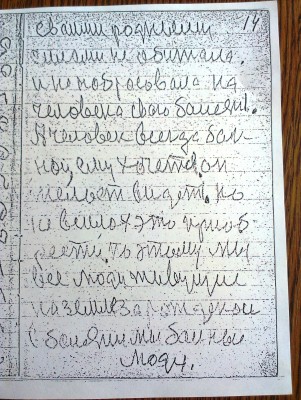 14
своими родными
силами не обитала.
и не набрасовала на
человека свою болезнь.
А человек всегда бол
ной, ему хочется он
может видеть, но
не в силах это приоб
рести. поэтому мы
все люди живущие
на земле зарожденые
с болезни мы болные
люди.